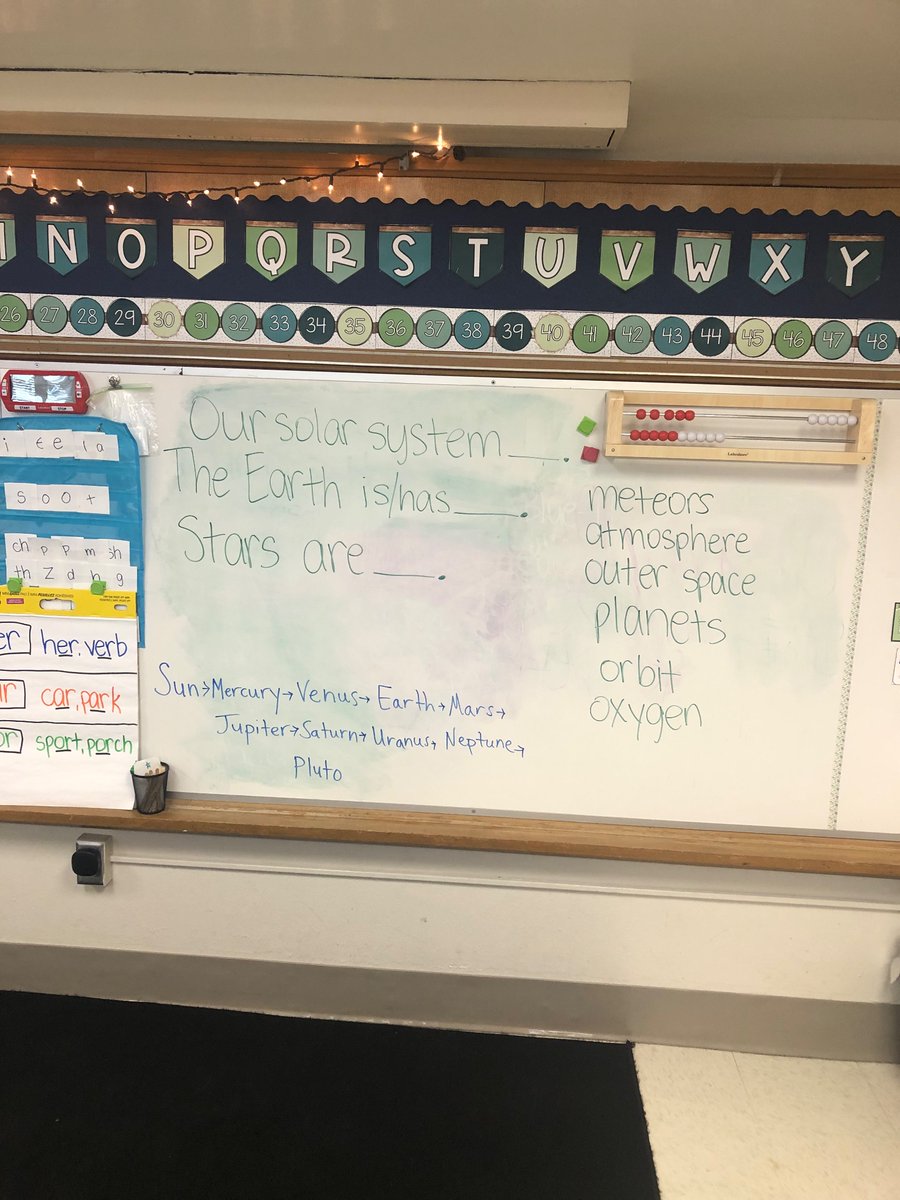 N O P Q R S T U V W X Y
26 27 28 29 30 31 32 33 34 35 36 37 38 39 40 41 42 43 44 45 46 47 48
START STOP
Our solar system ___.
The Earth is/has ___.
Stars are ___.
meteors
atmosphere
outer space
planets
orbit
oxygen
Sun→Mercury→Venus→Earth→Mars→
Jupiter→Saturn→Uranus→Neptune→
Pluto
i t e e l a
s o o t
ch p p m sh
th z d h g
er her, verb
ar car, park
or sport, porch